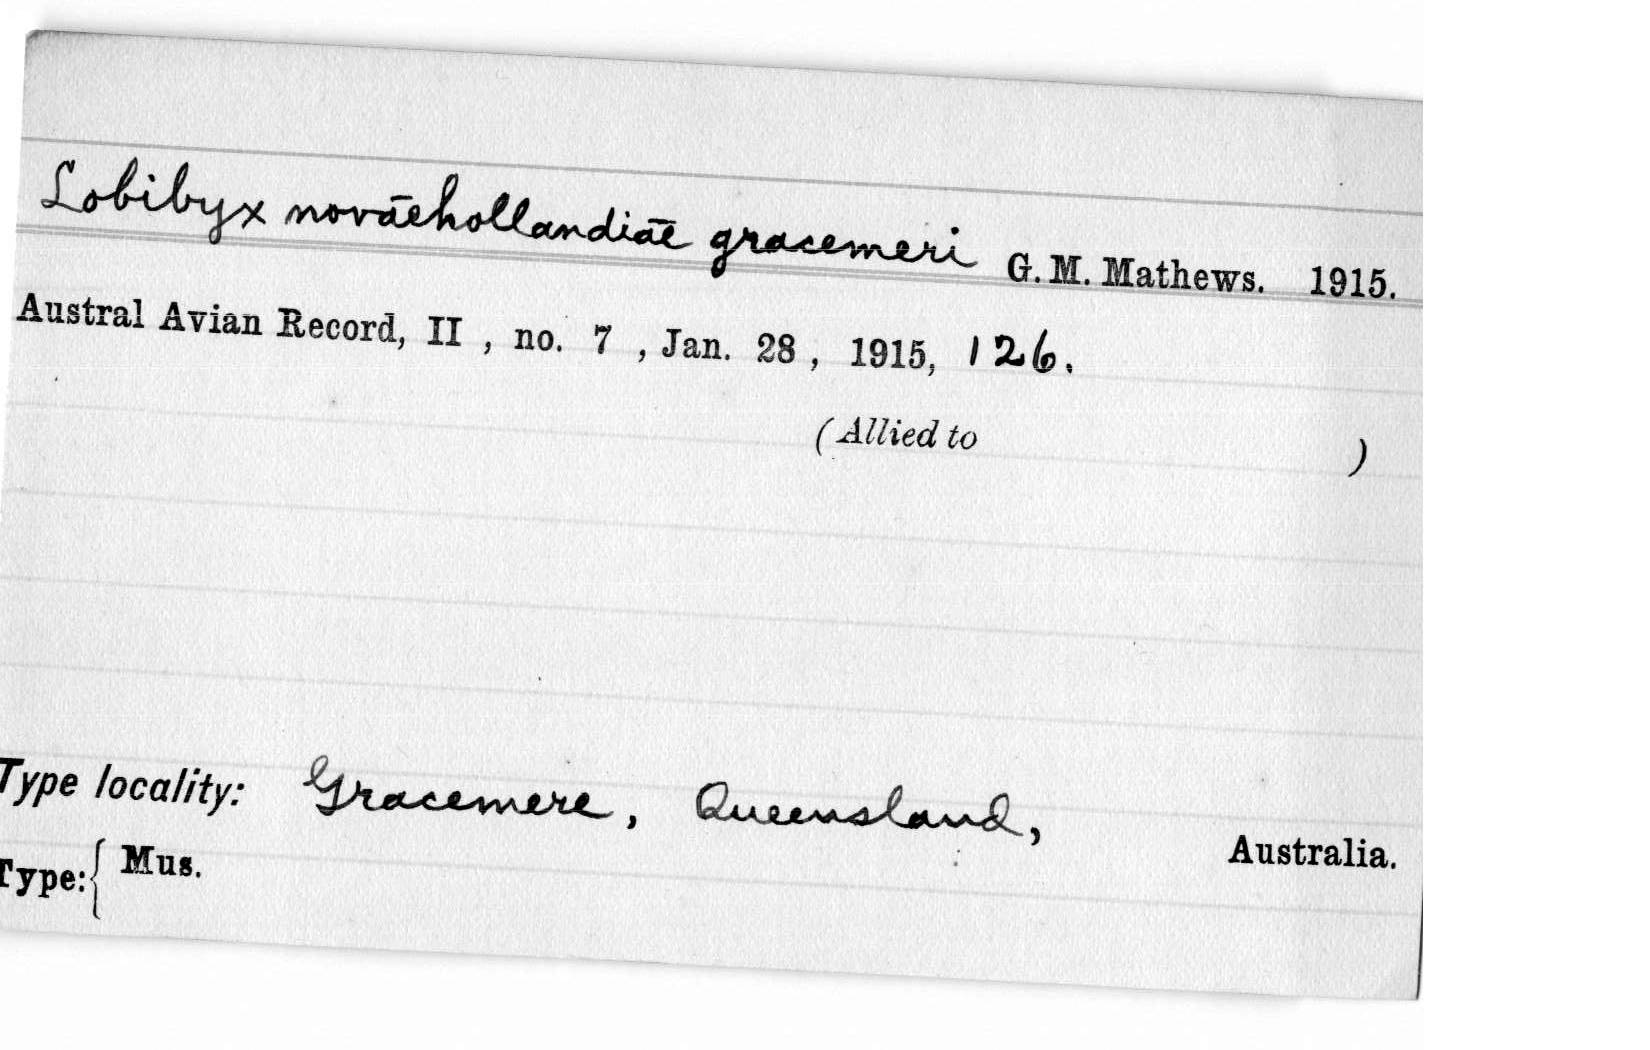 Lobibyx novāēhollandiāē gracemeri G. M. Mathews. 1915.
Austral Avian Record, II , no. 7 , Jan. 28 , 1915, 126.
(Allied to )
Type locality: Gracemere, Queensland, Australia.
Type:{ Mus.